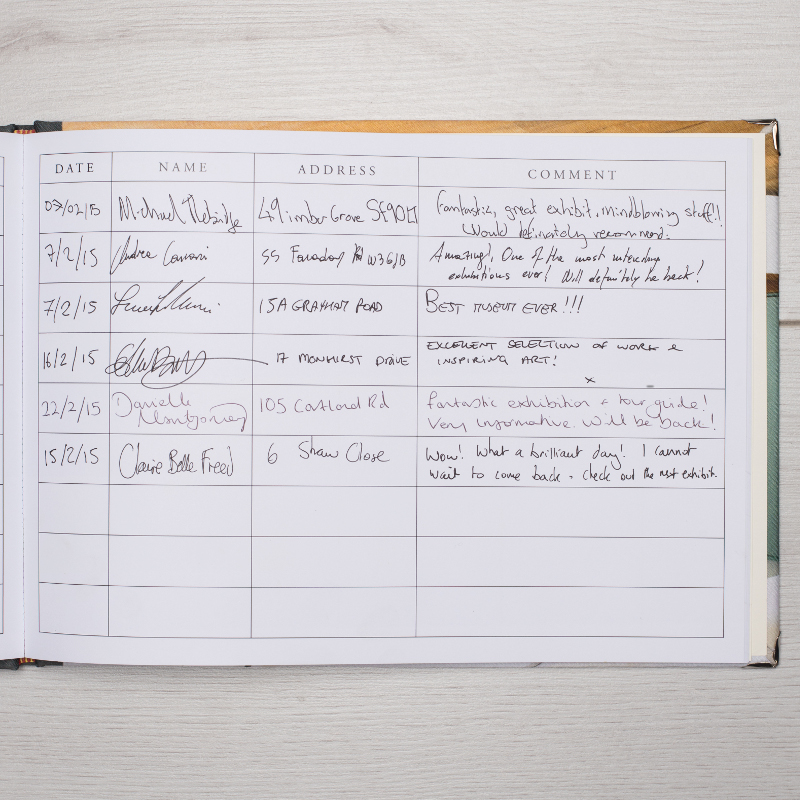 DATE NAME ADDRESS COMMENT
07/02/15 Michael 49 Grove Fantastic, great exhibit, mindblowing stuff!!
Would definately recommend.
7/2/15 Andrea 55 Faraday Rd W36JB Amazing!, One of the most
exhibitions ever! Will definitely be back!
7/2/15 15A GRAHAM ROAD BEST MUSEUM EVER!!!
16/2/15 17 MONHIRST DRIVE EXCELLENT SELECTION OF WORK &
INSPIRING ART!
x
22/2/15 Danielle Montgomery 105 Rd fantastic exhibition + tour guide!
Very informative. Will be back!
15/2/15 Claire Belle Freed 6 Shaw Close Wow! What a brilliant day! I cannot
wait to come back - check out the next exhibit.